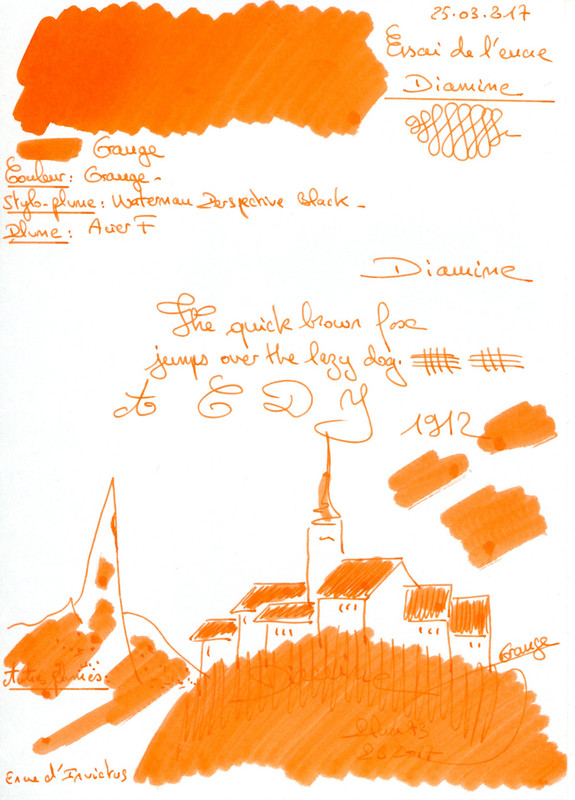 25.03.217
Essai de l'encre
Diamine
Orange
Couleur: Orange-
Stylo-plume: Waterman Perspective Black-
Plume: Acier F
Diamine
The quick brown fox
jumps over the lazy dog.
A E D Y
1912
Orange
Diamine
Encre d'Invictus